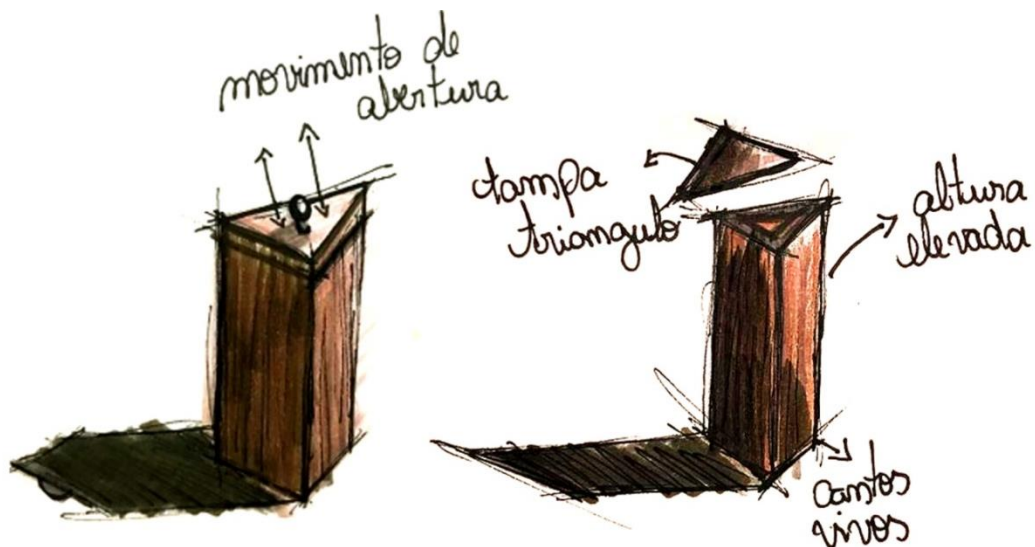 movimento de
abertura
tampa
triangulo
altura
elevada
cantos
vivos